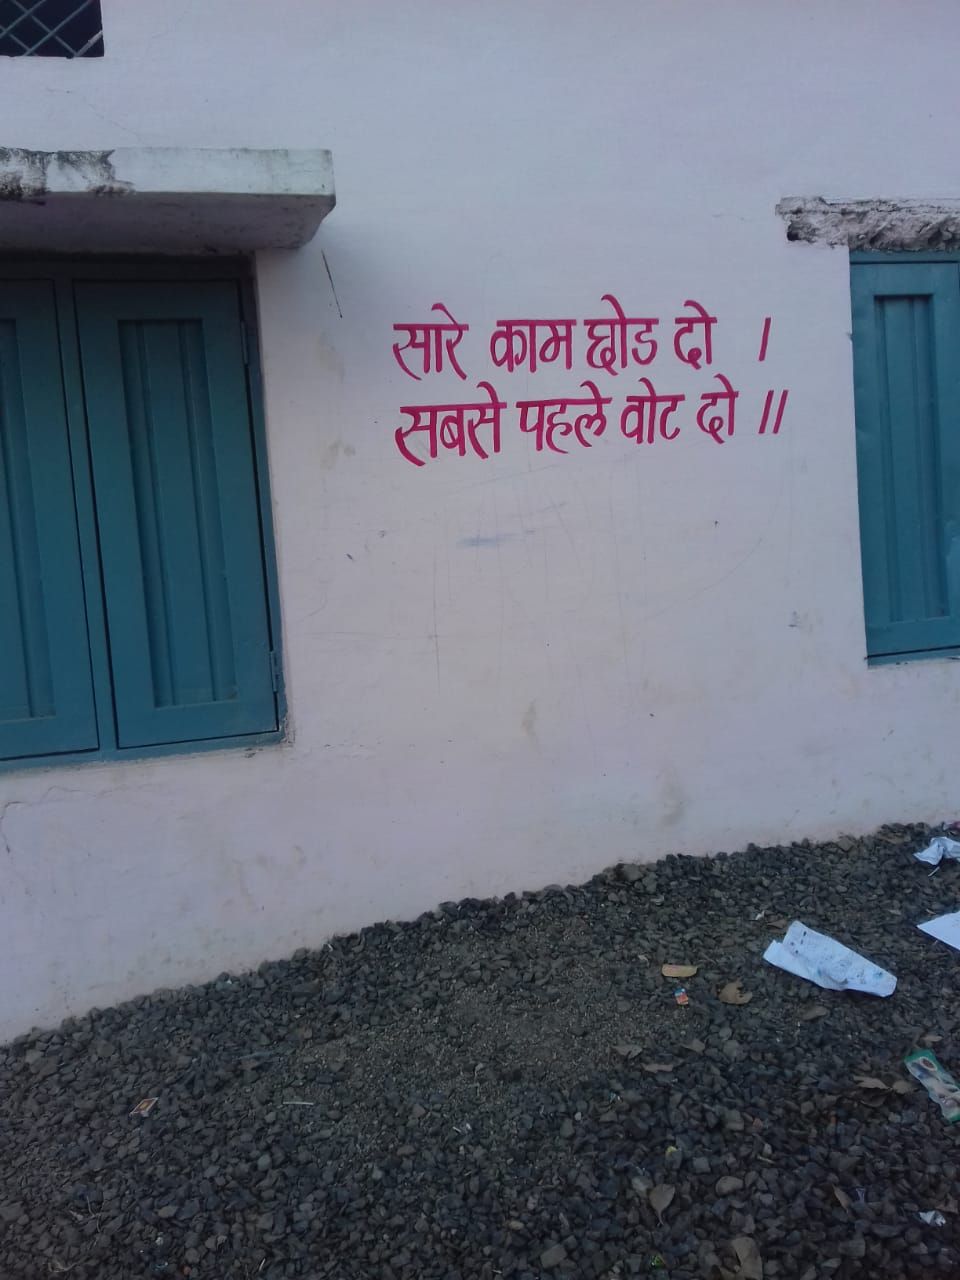 सारे काम छोड दो ।
सबसे पहले वोट दो ॥